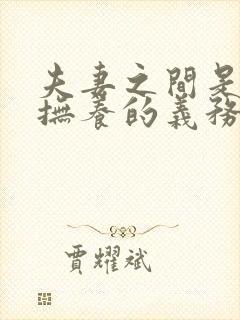 夫妻之間是
撫養的義務
賈耀斌